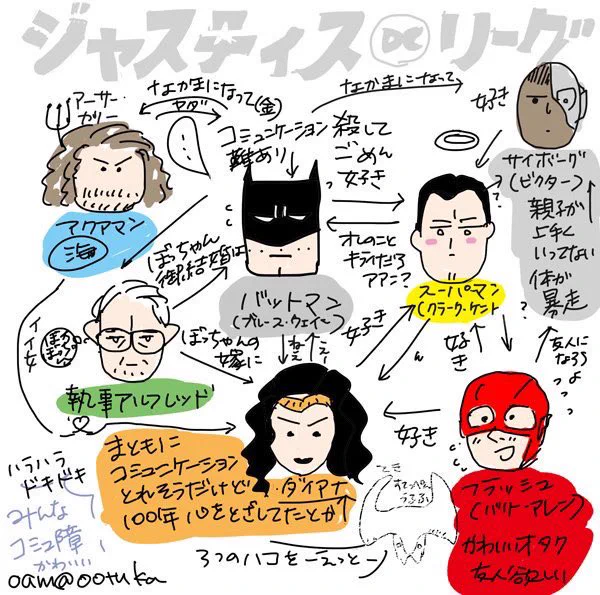 ジャスティス DC リーグ
アーサー・
カリー
なかまになって(金)
ヤダ
なかまになって
コミュニケーション
難あり
殺して
ごめん
好き
好き
サイボーグ
(ビクター)
親子が
上手く
いってない
体が
暴走
アクアマン
海
ぼっちゃん
御結婚は
オレのこと
キライだろ
アアン?
バットマン
(ブルース・ウェイン)
スーパーマン
(クラーク・ケント
イイ女
ぼっちゃんの
嫁に
好き
好き
友人に
なろうよ
執事アルフレッド
まともに
コミュニケーション
とれそうだけど
100年心をとざしてたとか
ダイアナ
好き
フラッシュ
(バリー・アレン)
かわいいオタク
友人欲しい
ハラハラ
ドキドキ
みんな
コミュ障
かわいい
3つのハコをーえっとー
てき
oam@ootuka